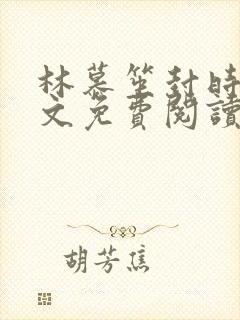 林慕笙封時
文免費閱讀
胡芳焦